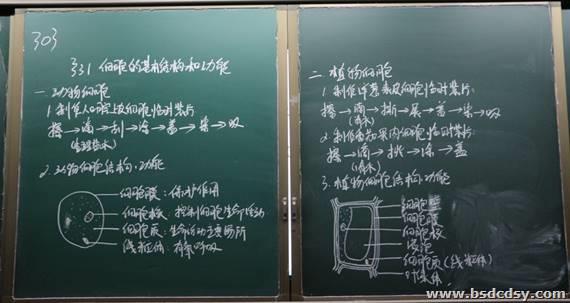 303
§3.1 细胞的基本结构和功能
一、动物细胞
1. 制作人口腔上皮细胞临时装片
擦→滴→刮→涂→盖→染→吸
(生理盐水)
2. 动物细胞结构、功能
细胞膜:保护作用
细胞核:控制细胞生命活动
细胞质:生命活动主要场所
线粒体:有氧呼吸
二、植物细胞
1. 制作洋葱表皮细胞临时装片:
擦→滴→撕→展→盖→染→吸
(清水)
2. 制作番茄果肉细胞临时装片:
擦→滴→挑→涂→盖
(清水)
3. 植物细胞结构、功能
细胞壁
细胞膜
细胞核
液泡
细胞质(线粒体)
叶绿体
www.bsdcdsy.com